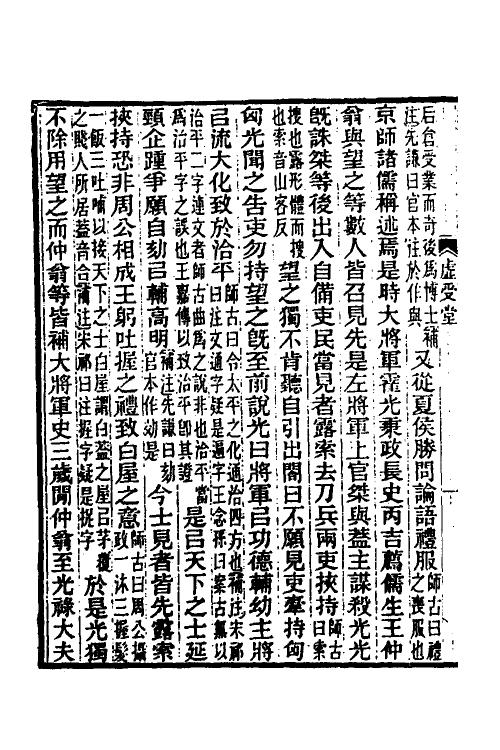 虛受堂
后倉受業而奇後爲博士補
注先謙曰官本注於作與
又從夏侯勝問論語禮服
師古曰禮
之喪服也
京師諸儒稱述焉是時大將軍霍光秉政長史丙吉薦儒生王仲
翁與望之等數人皆召見先是左將軍上官桀與蓋主謀殺光光
旣誅桀等後出入自備吏民當見者露索去刀兵兩吏挾持
師古
曰索
搜也露形體而搜
也索音山客反
望之獨不肯聽自引出閤曰不願見吏牽持匈
匈光聞之告吏勿持望之旣至前說光曰將軍㠯功德輔幼主將
㠯流大化致於洽平
師古曰令太平之化通洽四方也補注宋祁
曰注文通字疑是遍字王念孫曰案古無以
洽平二字連文者師古曲爲之說非也洽平當
爲治平字之誤也王嘉傳以致治平卽其證
是㠯天下之士延
頸企踵爭願自効㠯輔高明
補注先謙曰効
官本作効是
今士見者皆先露索
挾持恐非周公相成王躬吐握之禮致白屋之意
師古曰周公攝
政一沐三握髮
一飯三吐哺以接天下之士白屋謂白蓋之屋㠯茅覆
之賤人所居蓋音合補注宋祁曰注握字疑是捉字
於是光獨
不除用望之而仲翁等皆補大將軍史三歲閒仲翁至光祿大夫